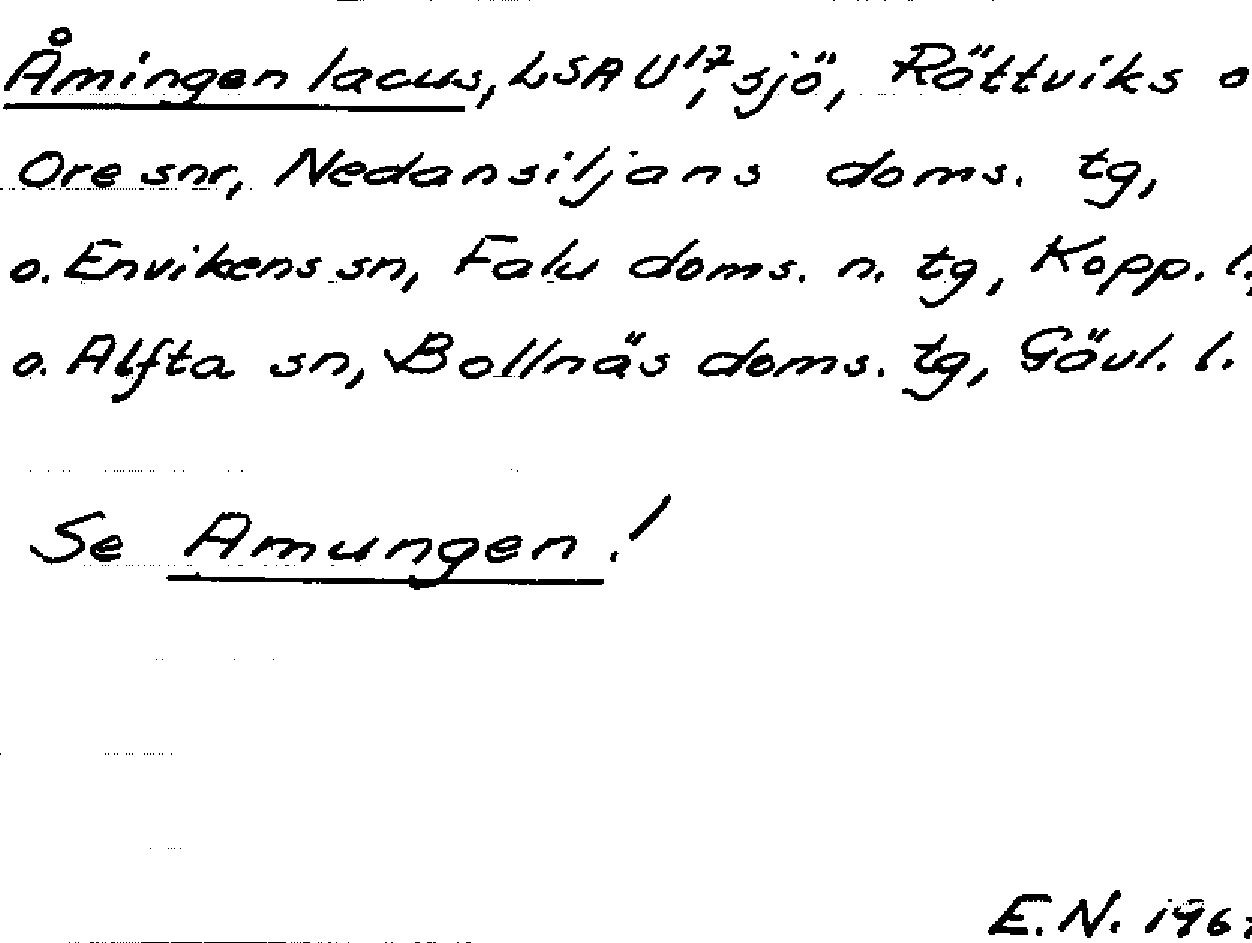 Åmingen lacus, LSA U¹⁷, sjö, Rättviks o
Ore snr, Nedansiljans doms. tg,
o. Envikens sn, Falu doms. n. tg, Kopp. l.,
o. Alfta sn, Bollnäs doms. tg, Gävl. l.
Se Amungen!
E.N.